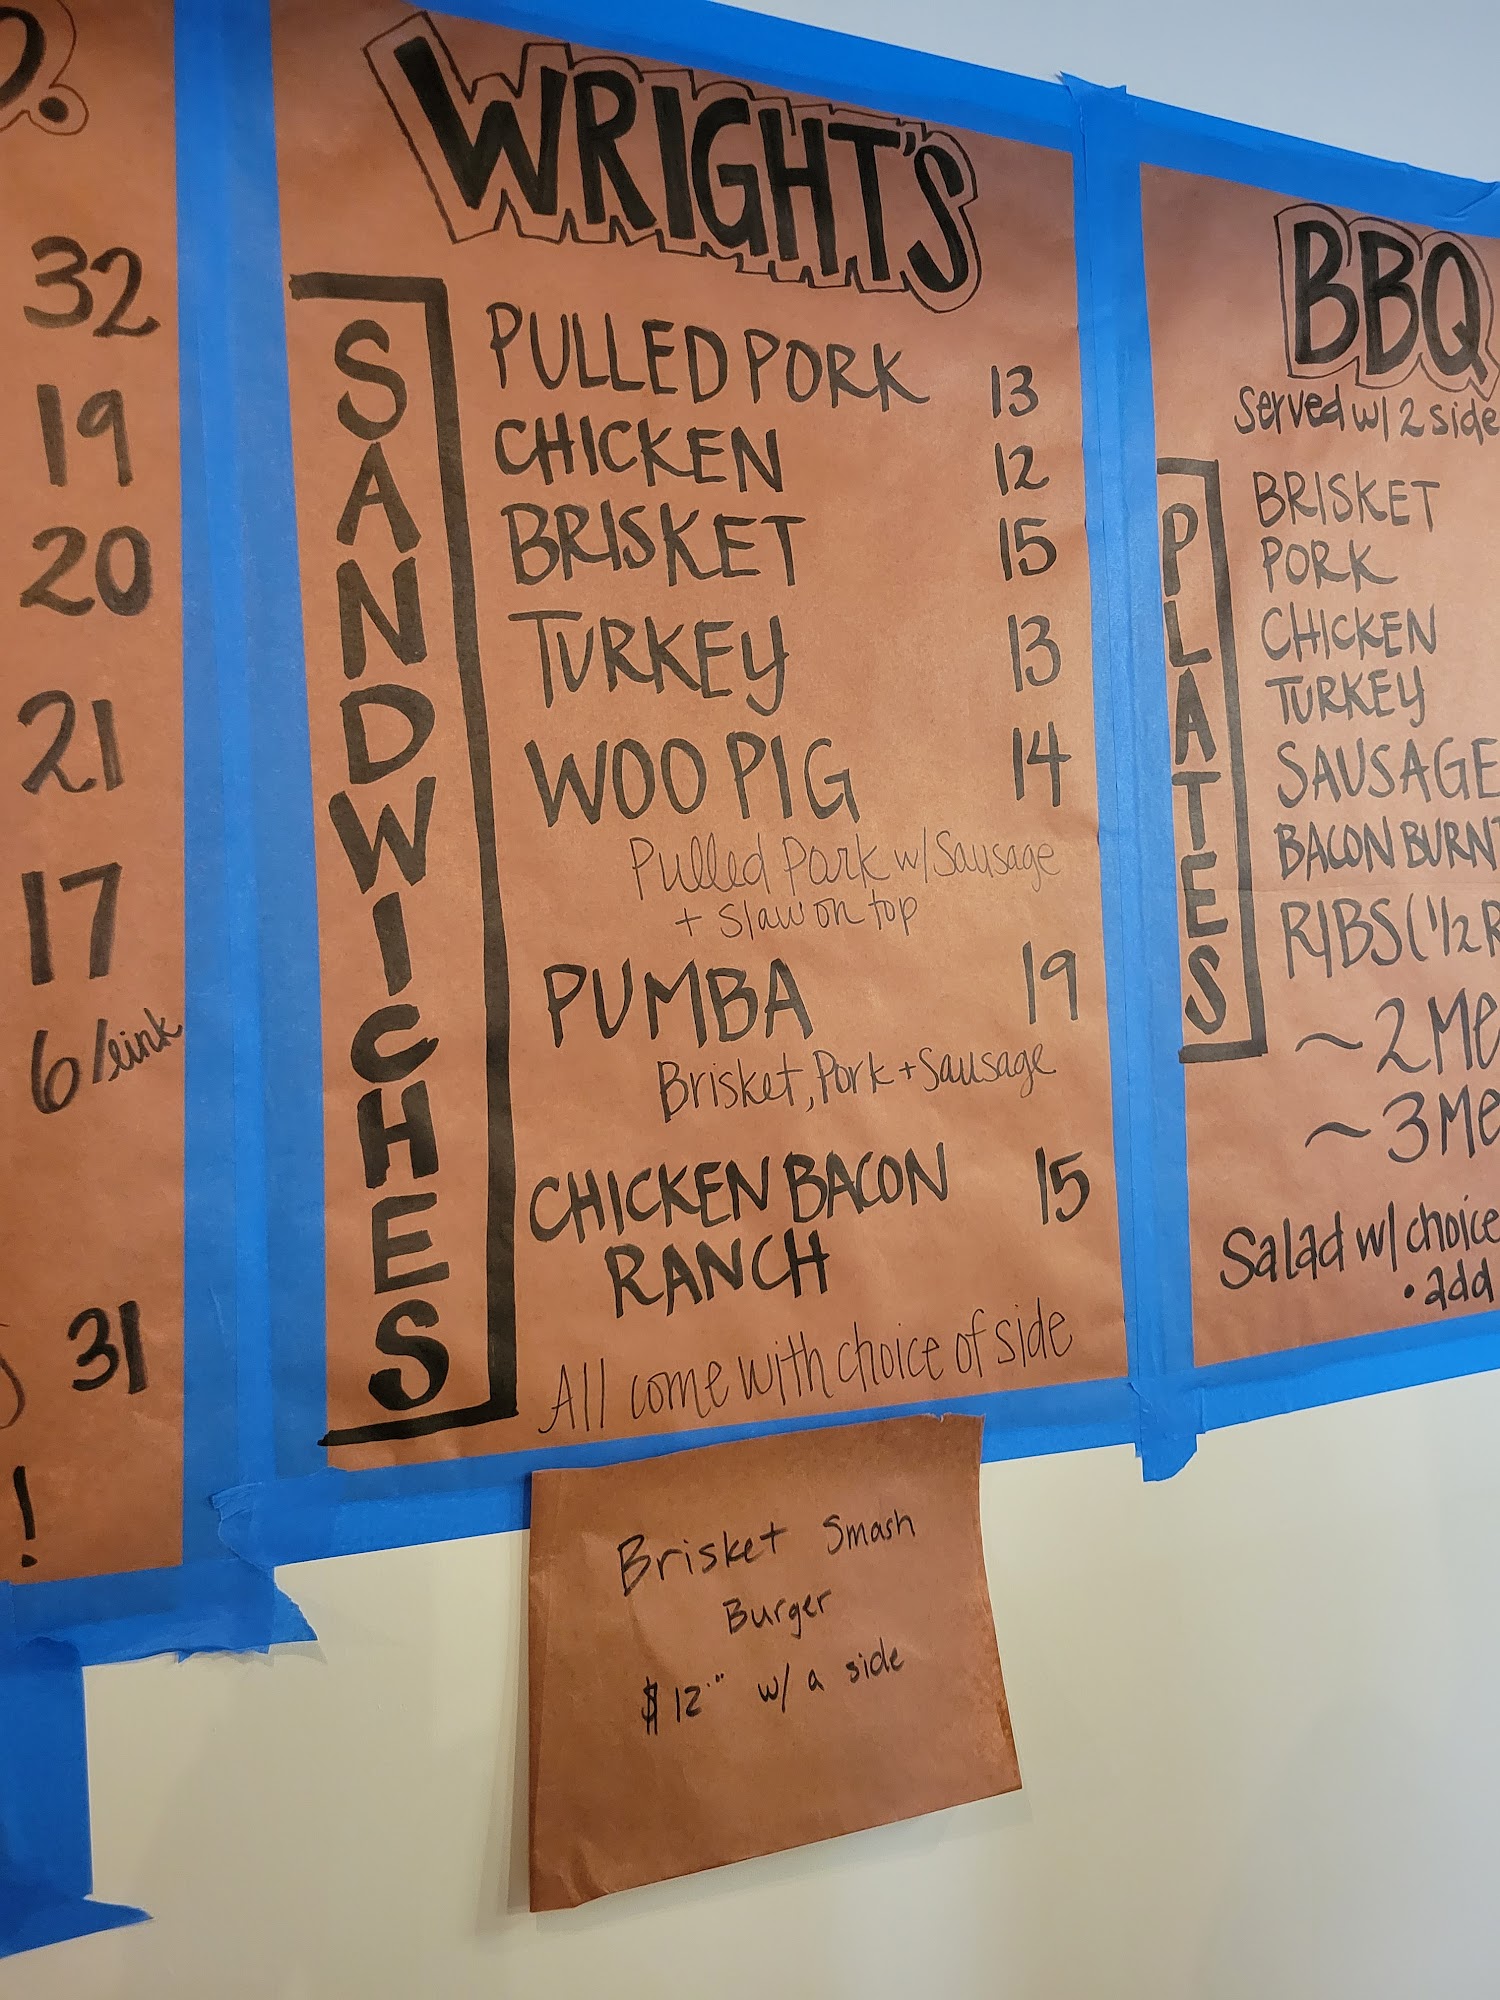 32
19
20
21
17
6/link
31
!
WRIGHT'S
SANDWICHES
PULLED PORK 13
CHICKEN 12
BRISKET 15
TURKEY 13
WOO PIG 14
Pulled Pork w/ Sausage
+ Slaw on top
PUMBA 19
Brisket, Pork + Sausage
CHICKEN BACON 15
RANCH
All come with choice of side
Brisket Smash
Burger
$12.00 w/ a side
BBQ
Served w/ 2 side
PLATES
BRISKET
PORK
CHICKEN
TURKEY
SAUSAGE
BACON BURNT
RIBS (1/2 R
~2 Me
~3 Me
Salad w/ choice
• add